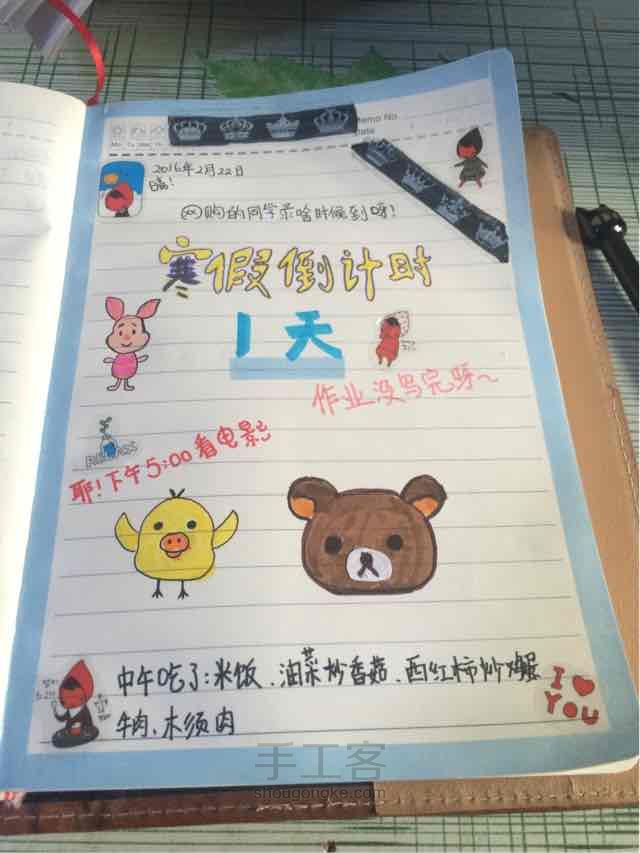 Memo No.
Date
2016年2月22日
晴!
网购的同学录啥时候到呀!
寒假倒计时
1天
作业没写完呀~
耶!下午5:00看电影
中午吃了:米饭、油菜炒香菇、西红柿炒鸡蛋
牛肉、木须肉
I ♥
YOU
手工客
shougongke.com